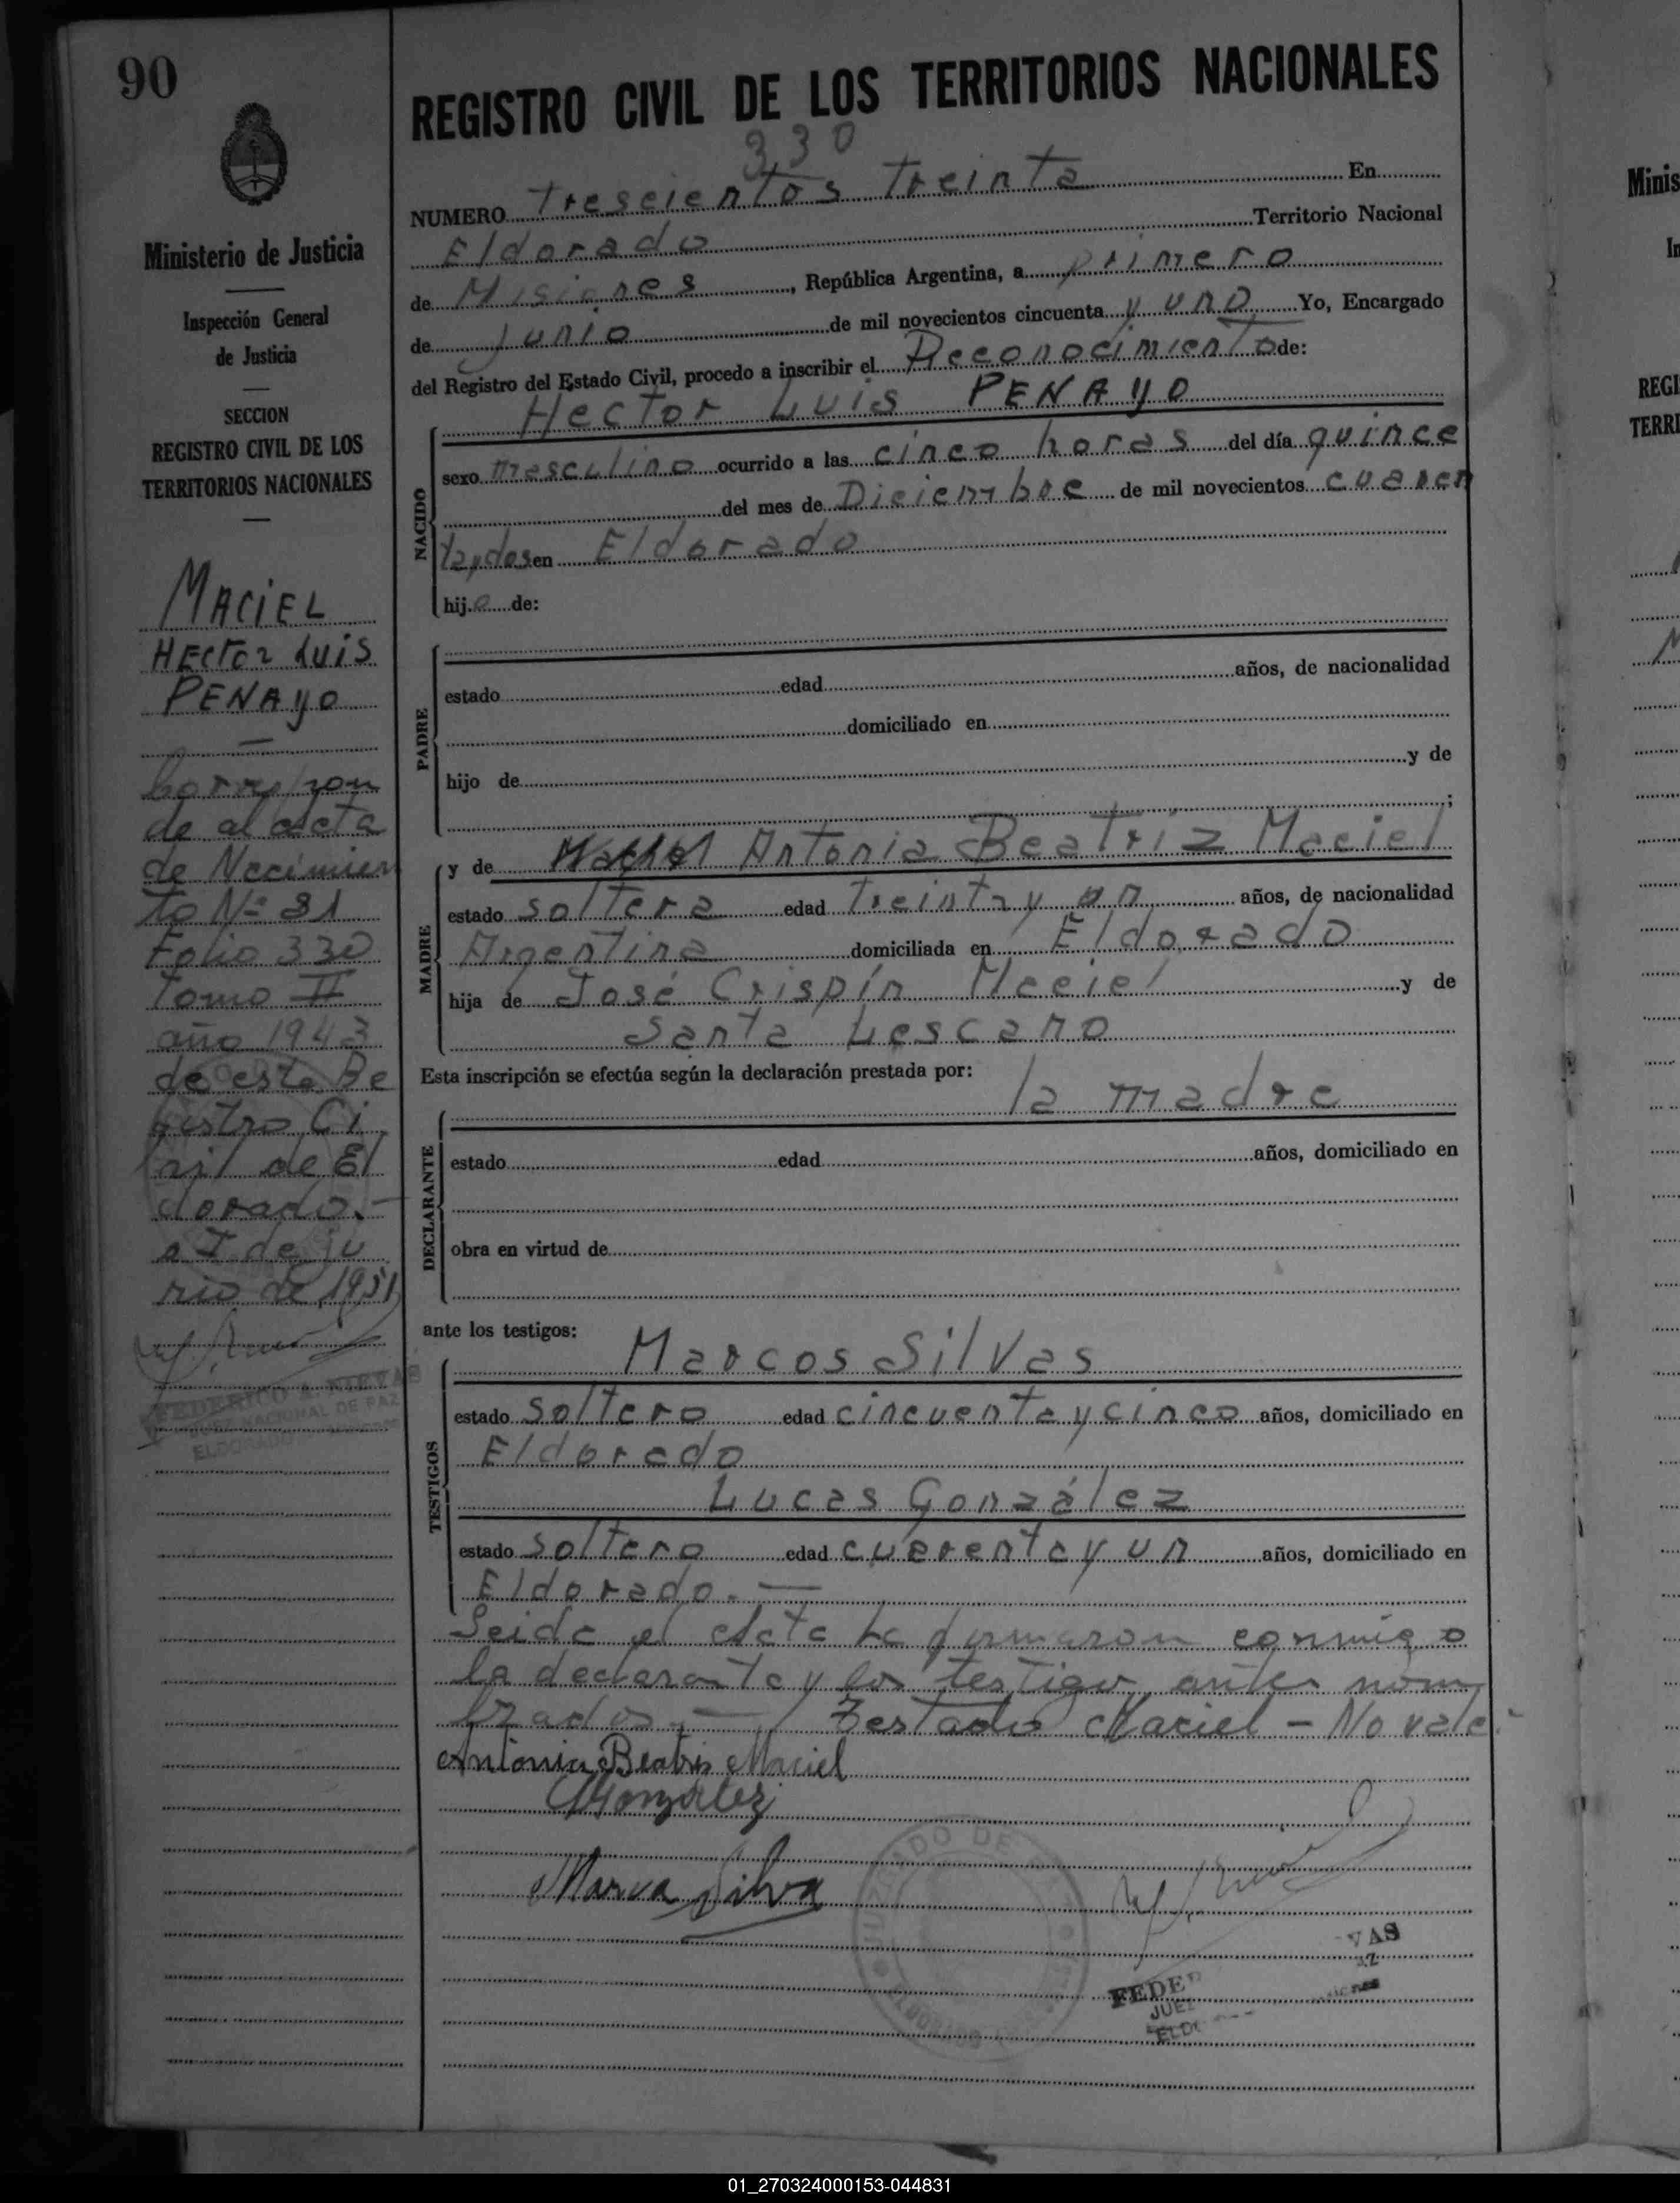 90
REGISTRO CIVIL DE LOS TERRITORIOS NACIONALES
330
NUMERO Trescientos Treinta En
Eldorado Territorio Nacional
de Misiones, República Argentina, a primero
de Junio de mil novecientos cincuenta y uno Yo, Encargado
del Registro del Estado Civil, procedo a inscribir el Reconocimiento de:
Hector Luis PENAYO
NACIDO
sexo masculino ocurrido a las cinco horas del día quince
del mes de Diciembre de mil novecientos cuaren
ta y dos en Eldorado
hijo de:
PADRE
estado edad años, de nacionalidad
domiciliado en
hijo de y de
;
MADRE
y de Maciel Antonia Beatríz Maciel
estado soltera edad treinta y un años, de nacionalidad
Argentina domiciliada en Eldorado
hija de José Crispín Maciel y de
Santa Lescano
Esta inscripción se efectúa según la declaración prestada por:
la madre
DECLARANTE
estado edad años, domiciliado en
obra en virtud de
ante los testigos:
TESTIGOS
Marcos Silvas
estado soltero edad cincuenta y cinco años, domiciliado en
Eldorado
Lucas González
estado soltero edad cuarenta y un años, domiciliado en
Eldorado. —
Leida el Acta la firmaron conmigo
la declarante y los testigos antes nom
brados. — Testado Maciel - No vale.
Antonia Beatris Maciel
González
Silva
FEDE VAS
JUEZ
ELDO
Ministerio de Justicia
Inspección General
de Justicia
SECCION
REGISTRO CIVIL DE LOS
TERRITORIOS NACIONALES
MACIEL
HECTOR LUIS
PENAYO
de al acta
de Nacimien
to Nº 81
Folio 330
Tomo II
año 1943
de este Re
gistro Ci
vil de El
dorado. -
de ju
nio de 1951
FEDERICO NIEVAS
JUEZ NACIONAL DE PAZ
ELDORADO
Minis
REGI
TERRI
01_270324000153-044831